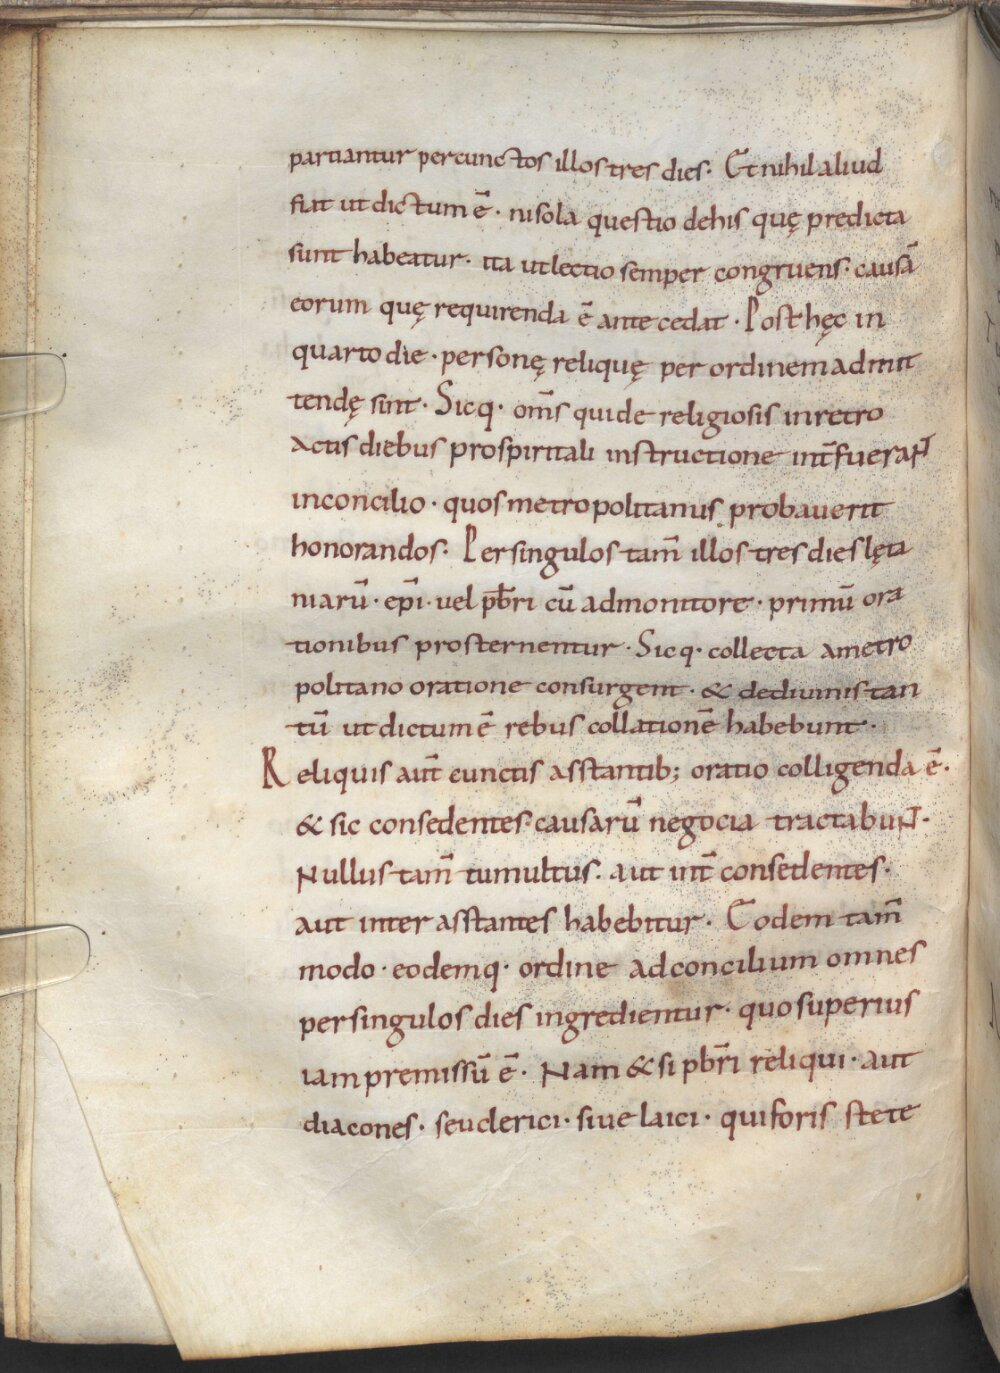 partiantur per cunctos illos tres dies· Et nihil aliud
fiat ut dictum ē· nisola questio dehis quę predicta
sunt habeatur· ita utlectio semper congruens· causā
eorum quę requirenda ē ante cedat· Post hęc in
quarto die· personę reliquę per ordinem admit
tendę sint· Sicq· om̄s quide religiosis inretro
actis diebus prospiritali instructione int̄fuerant
inconcilio· quos metropolitanus probauerit
honorandos· Per singulos tam̄ illos tres dies lęta
niarū· ep̄i· uel pb̄ri cū admonitore· primū ora
tionibus prosternentur· Sicq· collecta ametro
politano oratione consurgent· & dediuinis tan
tū ut dictum ē rebus collationē habebunt·
Reliquis aut̄ cunctis asstantib; oratio colligenda ē·
& sic consedentes· causarū negocia tractabunt·
Nullus tam̄ tumultus· aut int̄ consedentes·
aut inter asstantes habebitur· Eodem tam̄
modo· eodemq· ordine ad concilium omnes
per singulos dies ingredientur· quo superius
iam premissū ē· Nam & si pb̄ri reliqui· aut
diacones· seu clerici· siue laici· qui foris stete